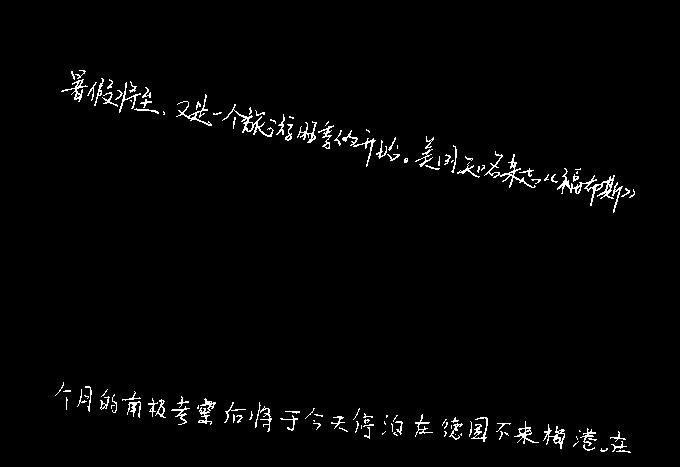 暑假将至，又是一个旅游旺季的开始。美国知名杂志《福布斯》
个月的南极考察后将于今天停泊在德国不来梅港。在